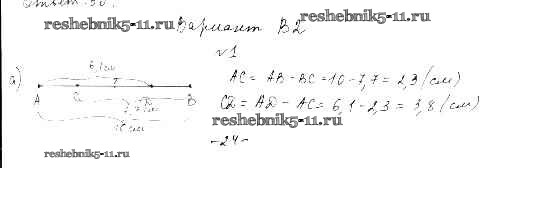 Ответ: 30.
reshebnik5-11.ru
Вариант В2
reshebnik5-11.ru
№1
а)
6,1 см
A C D B
7,7 см
10 см
AC = AB - BC = 10 - 7,7 = 2,3 (см)
CD = AD - AC = 6,1 - 2,3 = 3,8 (см)
reshebnik5-11.ru
-24-
reshebnik5-11.ru